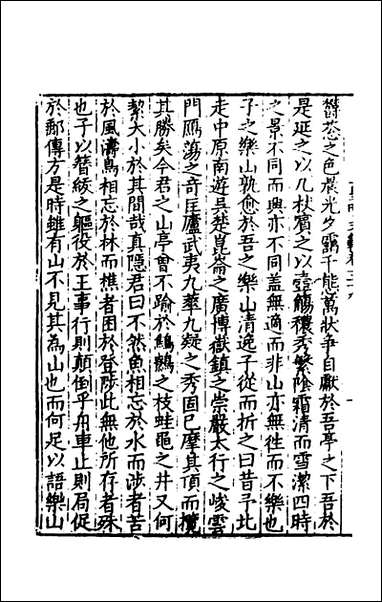 鬱葱之色晨光夕靄千態萬狀爭自獻於吾亭之下吾於
是延之以几杖賓之以壺觴穠秀繁陰霜清而雪潔四時
之景不同而興亦不同盖無適而非山亦無徃而不樂也
子之樂山孰愈於吾之樂山清逸子從而折之曰昔予北
走中原南遊吳楚崑崙之廣博嶽鎮之崇嚴太行之峻雲
門鴈蕩之奇匡廬武夷九華九疑之秀固已摩其頂而攬
其勝矣今君之山亭曾不踰於鷦鷯之枝蛙黽之井又何
絜大小於其間哉真隱君曰不然魚相忘於水而涉者苦
於風濤鳥相忘於林而樵者困於登陟此無他所存者殊
也子以簪綾之軀役於王事行則顛倒乎舟車止則局促
於郵傳方是時雖有山不見其為山也而何足以語樂山